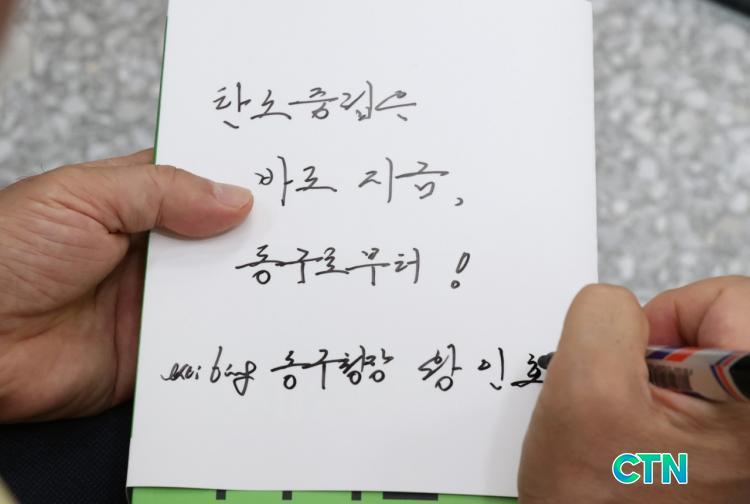 탄소중립은
바로 지금,
동구로부터!
동구청장 황인호
CTN